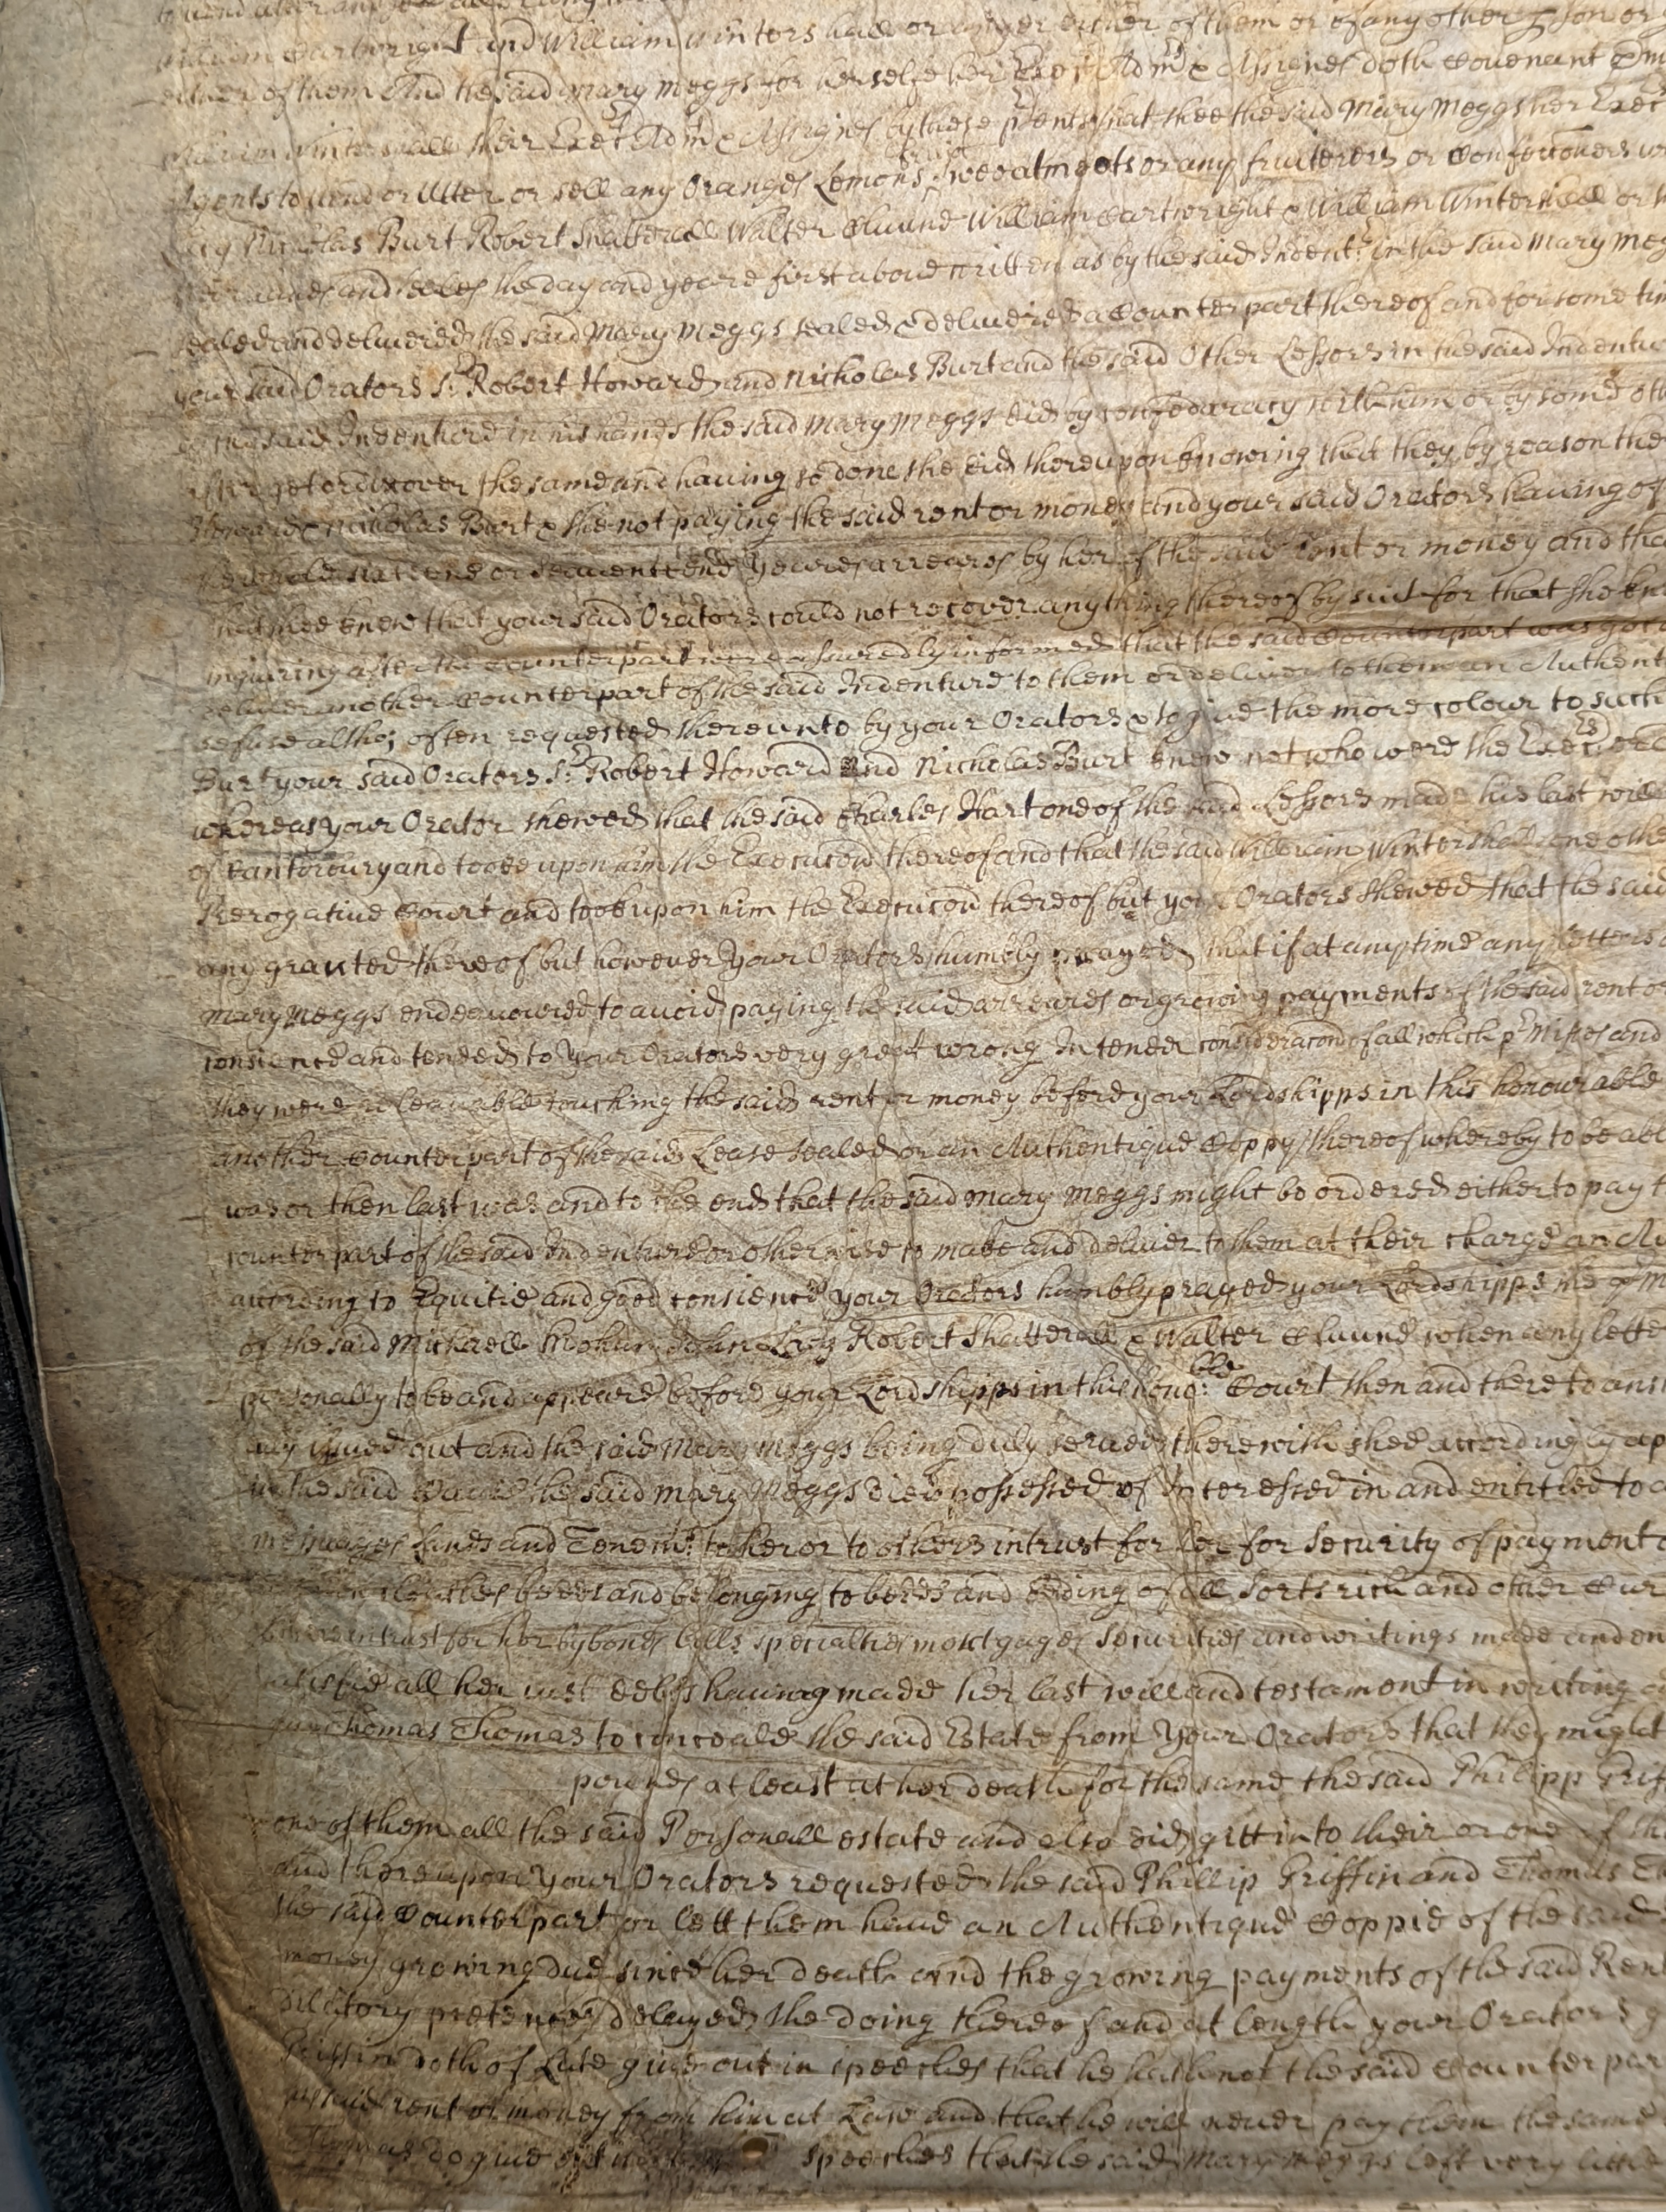 and William Wintershall or any or either of them or of any other
either of them And the said Mary Meggs for herselfe her Exec Adm & Assignes doth Covenant
their Exec Adm & Assignes by these psents that shee the said Mary Meggs her Exec
Agents to vend or Utter or sell any Oranges Lemons sweeatmeets or any fruiterers or Confectioners
Lacy Nicholas Burt Robert Shatterall Walter Clunne William Cartwright & William Wintershall or
and seales the day and yeare first above written as by the said Indent in the said Mary Meg
sealed and delivered the said Mary Meggs sealed & delivered a Counterpart thereof and for some tim
your said Orators Sr Robert Howard and Nicholas Burt and the said Other Lessors in the said Indentu
said Indenture in his hands the said Mary Meggs did by confedaracy with him or by some oth
the same and having so done she did thereupon knowing that they by reason the
Howard & Nicholas Burt & she not paying the said rent or money and your said Orators having of
yeares arreares by her of the said Rent or money and tha
that shee knew that your said Orators could not recover any thing thereof by suit for that she kn
inquiring after the Counterpart were assuredly informed that the said Counterpart was
deliver another Counterpart of the said Indenture to them or deliver to them an Authent
refuse altho; often requested thereunto by your Orators & to give the more colour to such
Burt your said Orators Sr Robert Howard and Nicholas Burt knew not who were the Exec
whereas your Orator shewed that the said Charles Hart one of the said Lessors made his last will
of Canterbury and tooke upon him the Execucon thereof and that the said William Wintershall one othe
Prerogative Court and tooke upon him the Execucon thereof but your Orators shewed that the said
any granted thereof but however your Orators humbly prayed that if at any time any letters
Mary Meggs endeavoured to avoid paying the said arreares or growing payments of the said rent or
consience and tended to Your Orators very great wrong In tender consideracon of all which pmises and
they were releavable touching the said rent or money before your Lordshipps in this honourable
another Counterpart of the said Lease sealed or an Authentique Coppy thereof whereby to be abl
was or then last was and to the end that the said Mary Meggs might be ordered either to pay t
counterpart of the said Indenture or otherwise to make and deliver to them at their charge an Au
according to Equitie and good consience your Orators humbly prayed your Lordshipps
of the said Michaell Mohun John Lacy Robert Shatterall & Walter Clunne when any lette
personally to be and appeare before your Lordshipps in this honoble Court then and there to ans
issued out and the said Mary Meggs being duly served therewith shee accordingly ap
in the said Cause the said Mary Meggs died possessed of Interessed in and entitled to
messuages lands and Tenemts to her or to others in trust for her for Security of payment
beds and belonging to beds and beding of all sorts rich and other Cur
in trust for her by bonds bills specialties mortgages securities and writings made and
satisfie all her just debts having made her last will and testament in writing
Thomas Thomas to conceale the said Estate from Your Orators that they might
pounds at least at her death for the same the said Philipp Grif
one of them all the said Personall estate and also did gitt into their or one of th
and thereupon Your Orators requested the said Phillip Griffin and Thomas T
the said Counterpart or lett them have an Authentique Coppie of the said
money growing due since her death and the growing payments of the said Rent
dilatory pretences delayed the doing thereof and at length your Orators
Griffin doth of Late give out in speeches that he hath not the said Counterpar
said rent or money from him at Law and that he will never pay them the same
Thomas do give out speeches that the said Mary Meggs left very little